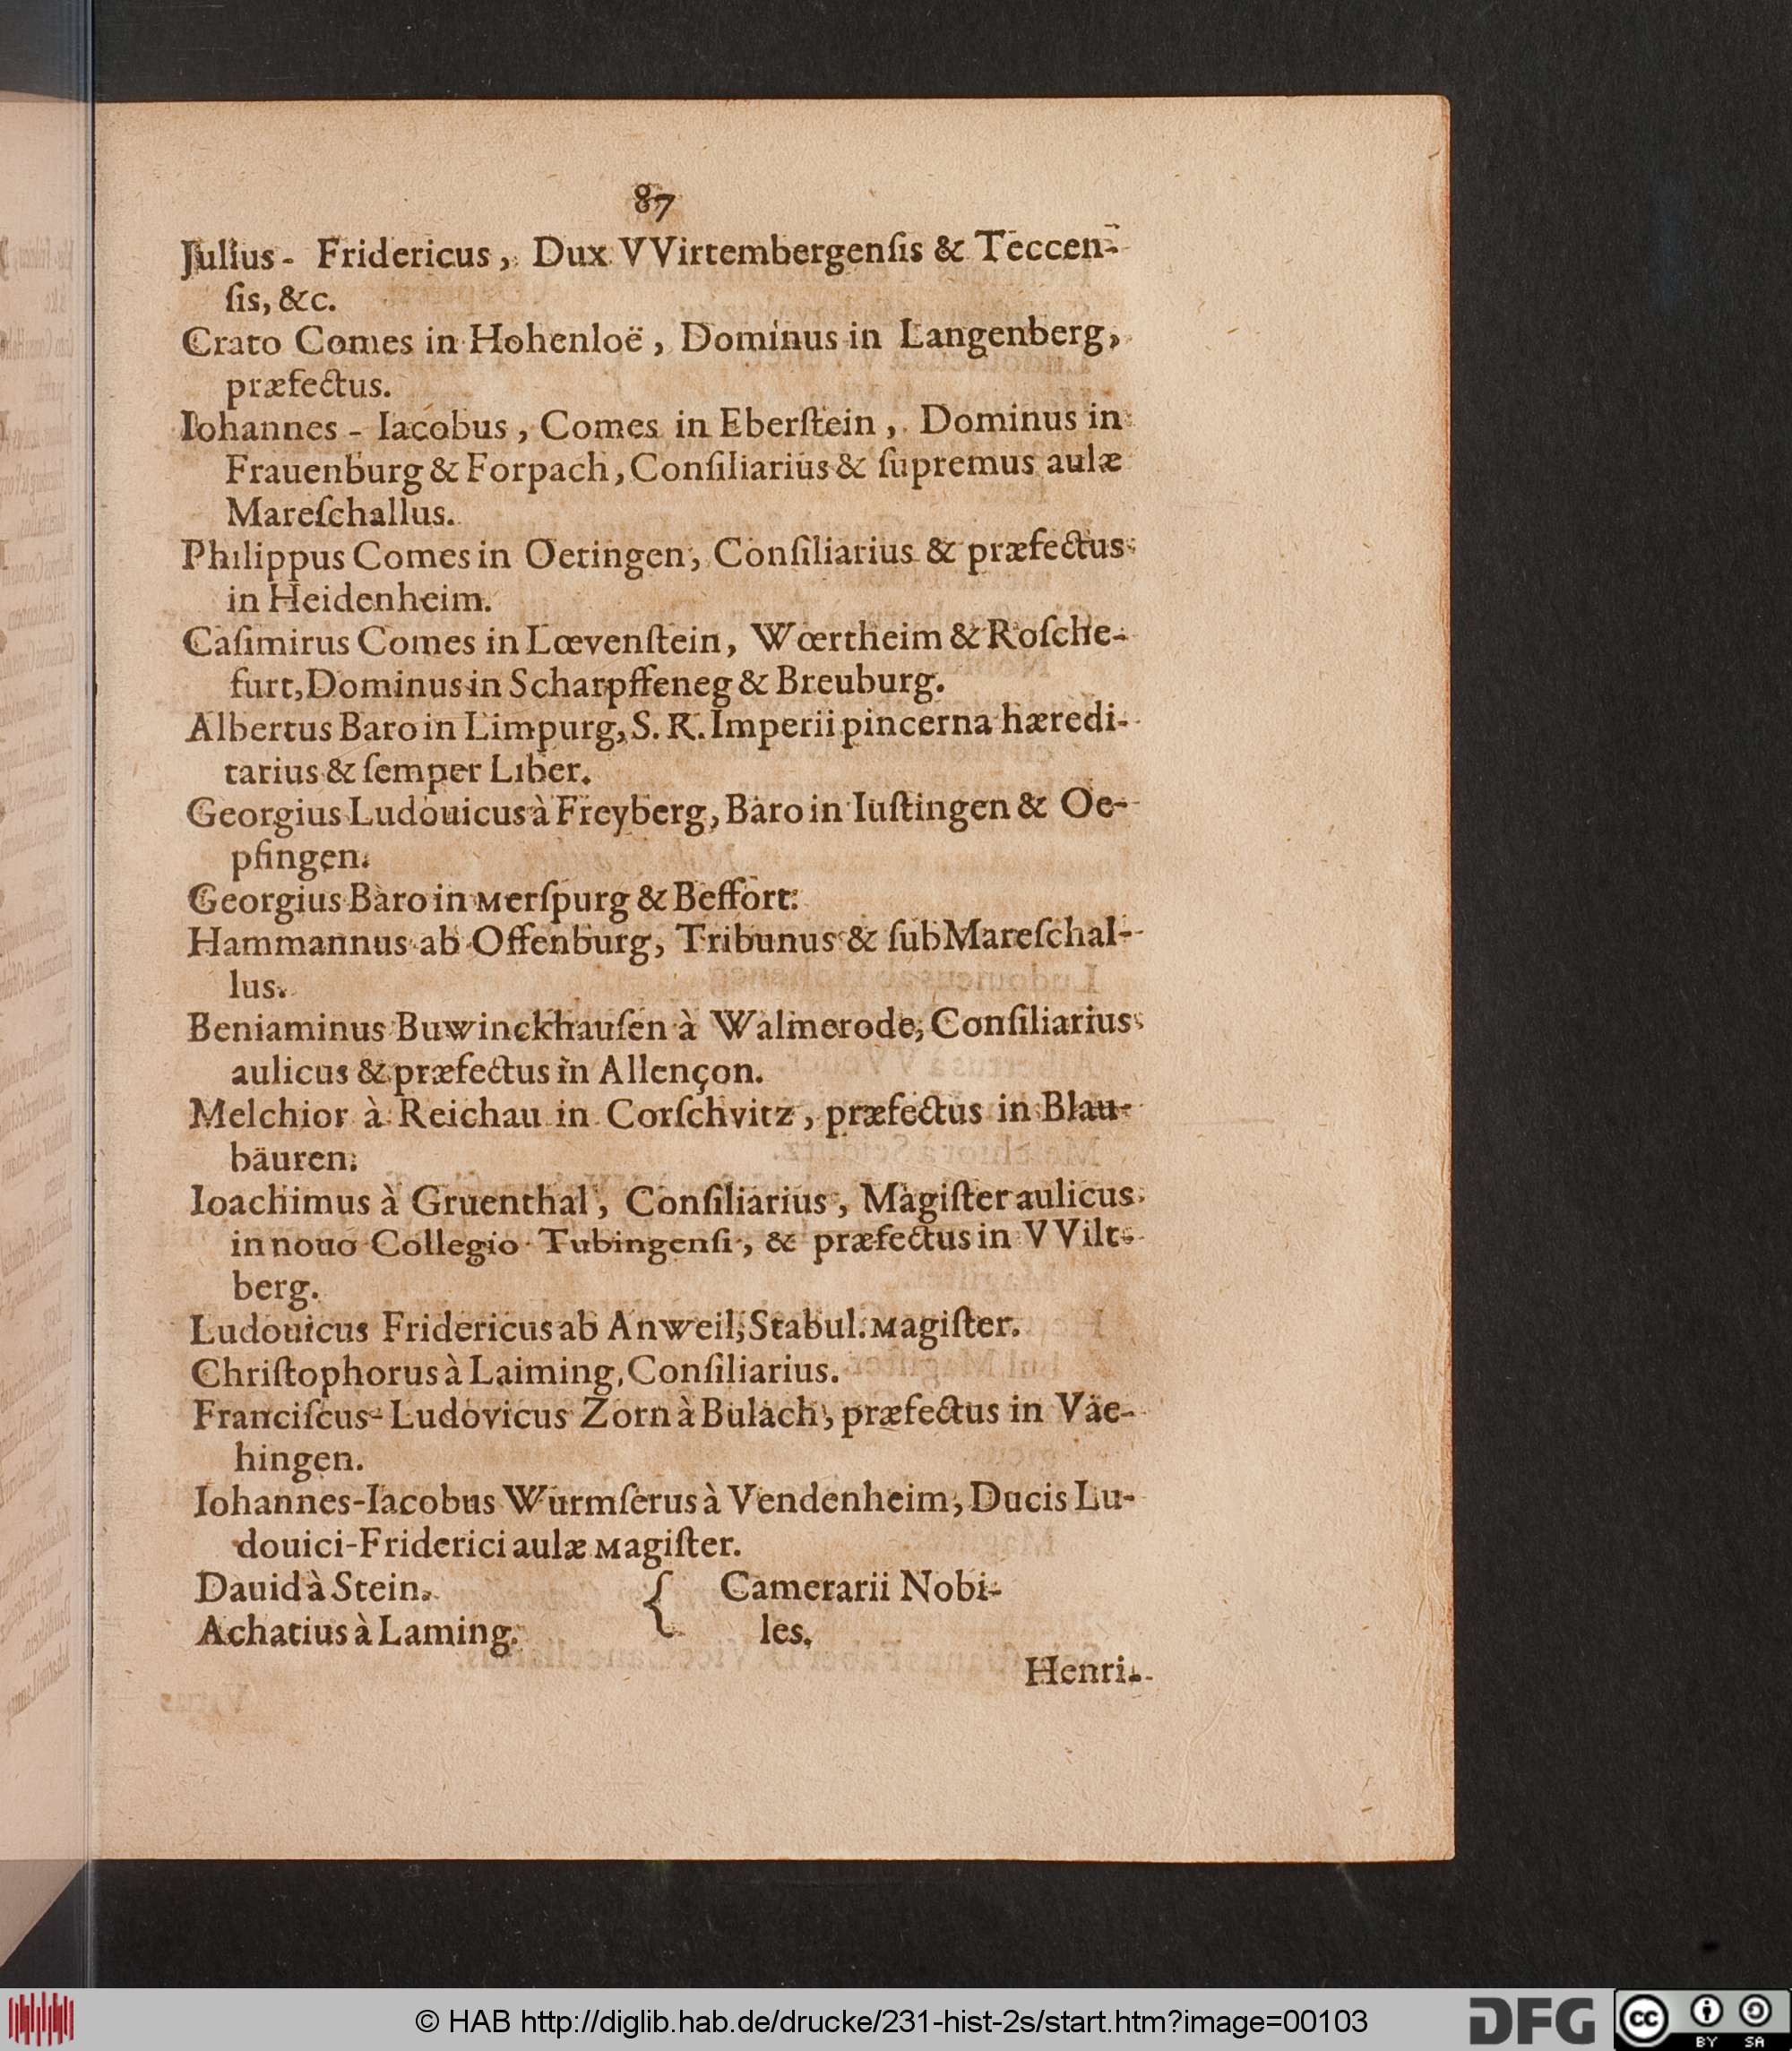 87
Julius - Fridericus, Dux VVirtembergenſis & Teccen-
ſis, &c.
Crato Comes in Hohenloë, Dominus in Langenberg,
præfectus.
Iohannes - Iacobus, Comes in Eberſtein, Dominus in
Frauenburg & Forpach, Conſiliarius & ſupremus aulæ
Mareſchallus.
Philippus Comes in Oetingen, Conſiliarius & præfectus
in Heidenheim.
Caſimirus Comes in Lœvenſtein, Wœrtheim & Roſche-
furt, Dominus in Scharpffeneg & Breuburg.
Albertus Baro in Limpurg, S. R. Imperii pincerna hæredi-
tarius & ſemper Liber.
Georgius Ludouicus à Freyberg, Baro in Iuſtingen & Oe-
pfingen.
Georgius Baro in Merſpurg & Beffort.
Hammannus ab Offenburg, Tribunus & ſubMareſchal-
lus.
Beniaminus Buwinckhauſen à Walmerode, Conſiliarius
aulicus & præfectus in Allençon.
Melchior à Reichau in Corſchvitz, præfectus in Blau-
bäuren.
Ioachimus à Gruenthal, Conſiliarius, Magiſter aulicus
in nouo Collegio Tubingenſi, & præfectus in VVilt-
berg.
Ludouicus Fridericus ab Anweil, Stabul. Magiſter.
Chriſtophorus à Laiming, Conſiliarius.
Franciſcus-Ludovicus Zorn à Bulach, præfectus in Väe-
hingen.
Iohannes-Iacobus Wurmſerus à Vendenheim, Ducis Lu-
douici-Friderici aulæ Magiſter.
Dauid à Stein. { Camerarii Nobi-
Achatius à Laming. les.
Henri-
© HAB http://diglib.hab.de/drucke/231-hist-2s/start.htm?image=00103
DFG
cc BY SA